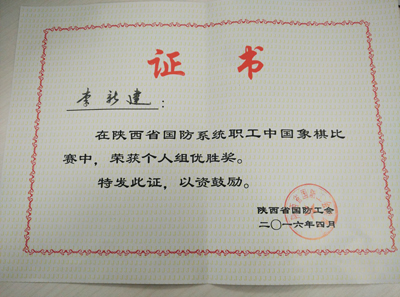 证书
李新建：
在陕西省国防系统职工中国象棋比
赛中，荣获个人组优胜奖。
特发此证，以资鼓励。
陕西省国防工会
二〇一六年四月